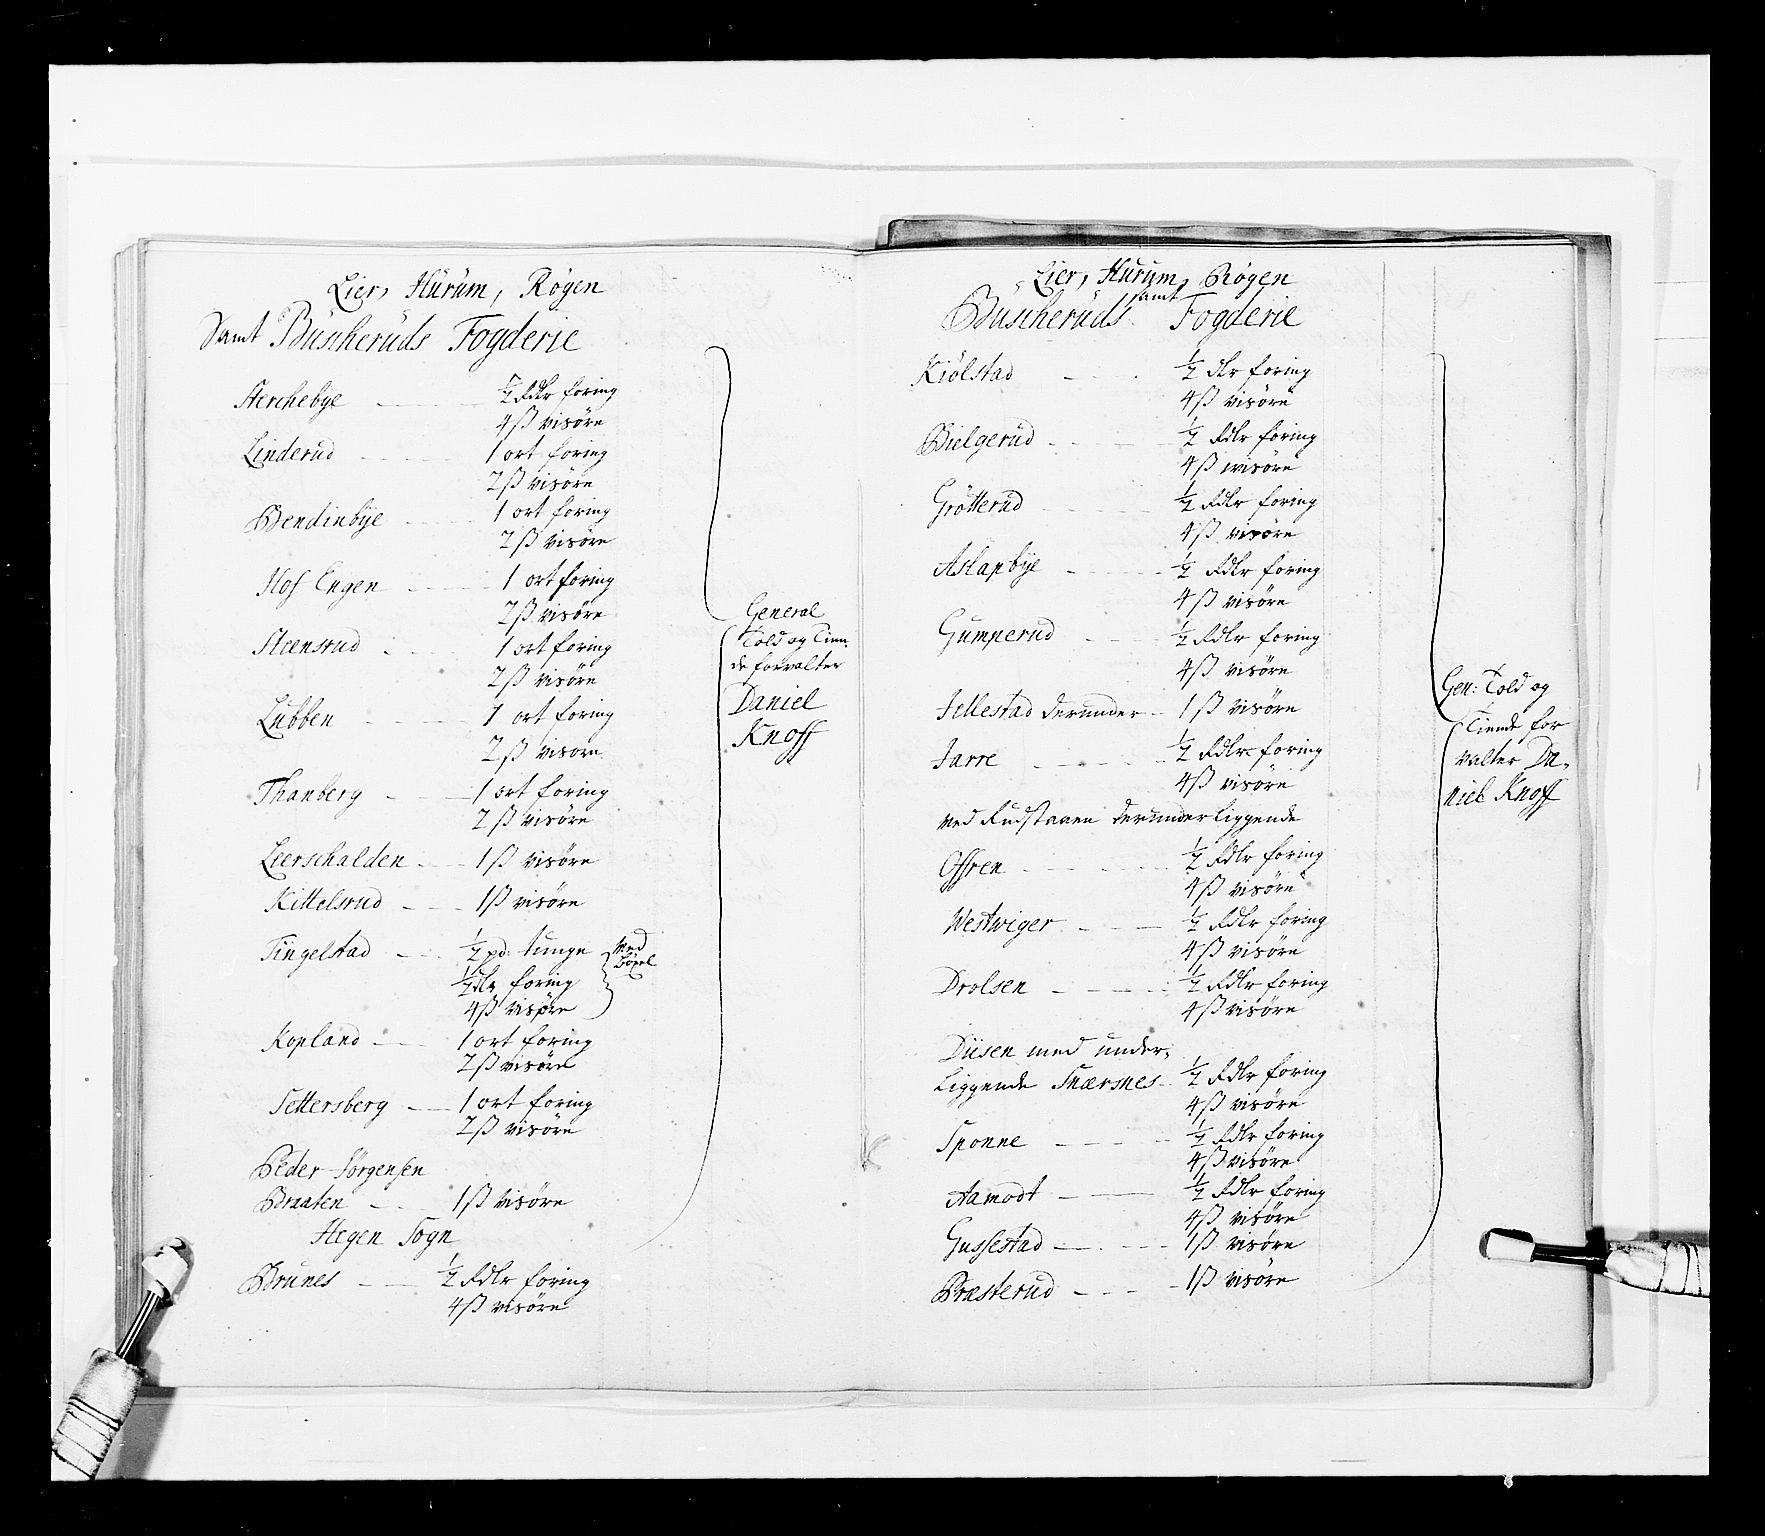 Lier, Hurum, Røgen
Samt Buscheruds Fogderie
Sterchebye ½ Rdlr foring
4 ß visøre
Linderud 1 ort foring
2 ß visøre
Bendinbye 1 ort foring
2 ß visøre
Hof Engen 1 ort foring
2 ß visøre
Steensrud 1 ort foring
2 ß visøre
Lubben 1 ort foring
2 ß visøre
Thanberg 1 ort foring
2 ß visøre
Leerschalden 1 ß visøre
Kittelsrud 1 ß visøre
Tingelstad ½ pd: tunge
½ dlr foring
4 ß visøre
Med
Bøxel
Kopland 1 ort foring
2 ß visøre
Settersberg 1 ort foring
2 ß visøre
Peder Jörgensen
Braaten 1 ß visøre
Hegen Sogn
Brunes ½ Rdlr foring
4 ß visøre
General
Told og Tien-
de forvalter
Daniel
Knoff
Lier, Hurum, Røgen
samt
Buscheruds Fogderie
Kiölstad ½ dlr foring
4 ß visöre
Bielgerud ½ Rdlr foring
4 ß wisöre
Grötterud ½ Rdlr foring
4 ß visöre
Aslapbye ½ Rdlr foring
4 ß visöre
Gumperud ½ Rdlr foring
4 ß visöre
Jellestad derunder 1 ß visöre
Jarre ½ Rdlr foring
4 ß visöre
med Rudstaaen derunder liggende
Offren ½ Rdlr foring
4 ß visöre
Westwiger ½ Rdlr foring
4 ß visöre
Drolsen ½ Rdlr foring
4 ß visöre
Diisen med under-
liggende Snærsnes ½ Rdlr foring
4 ß visöre
Sponne ½ Rdlr foring
4 ß visöre
Aamodt ½ Rdlr foring
4 ß visöre
Gussestad 1 ß visöre
Præsterud 1 ß visöre
Gen: Told og
Tiende for
valter Da-
niel Knoff